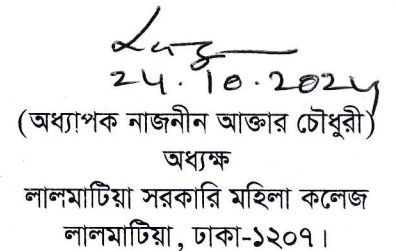 24.10.2024
(অধ্যাপক নাজনীন আক্তার চৌধুরী)
অধ্যক্ষ
লালমাটিয়া সরকারি মহিলা কলেজ
লালমাটিয়া, ঢাকা-১২০৭।